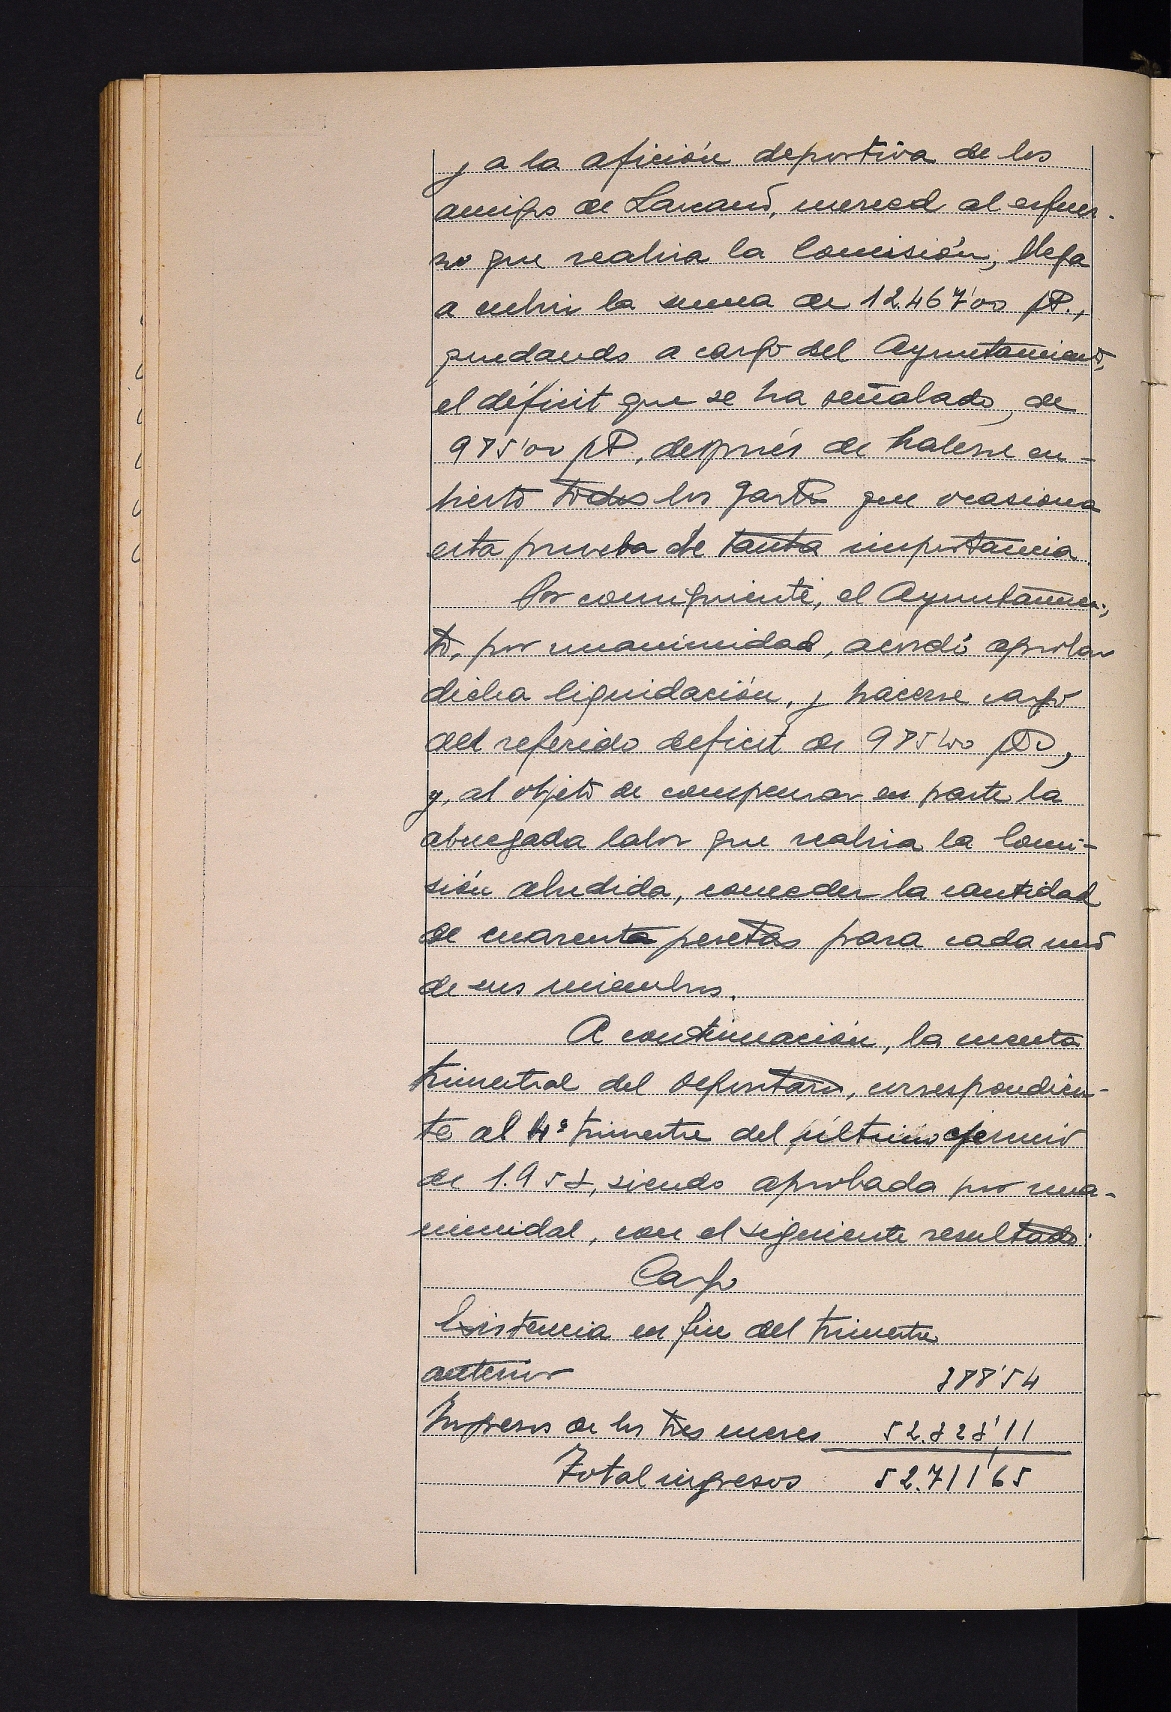 y a la afición deportiva de los
amigos de Lazcano, merced al esfuer-
zo que realiza la Comisión, llega
a cubrir la suma de 12.467'00 pts.,
quedando a cargo del Ayuntamiento,
el déficit que se ha señalado, de
985'00 pts, después de haberse cu-
bierto todos los gastos que ocasiona
esta prueba de tanta importancia.
Por consiguiente, el Ayuntamien-
to, por unanimidad, acordó aprobar
dicha liquidación, y hacerse cargo
del referido deficit de 985'00 pts,
y, al objeto de compensar en parte la
abnegada labor que realiza la Comi-
sión aludida, conceder la cantidad
de cuarenta pesetas para cada uno
de sus miembros.
A continuación, la cuenta
trimestral del Depositario, correspondien-
te al 4º trimestre del último ejercicio
de 1.953, siendo aprobada por una-
nimidad, con el siguiente resultado.
Cargo
Existencia en fin del trimestre
anterior 388'54
Ingresos de los tres meses 52.323'11
Total ingresos 52.711'65